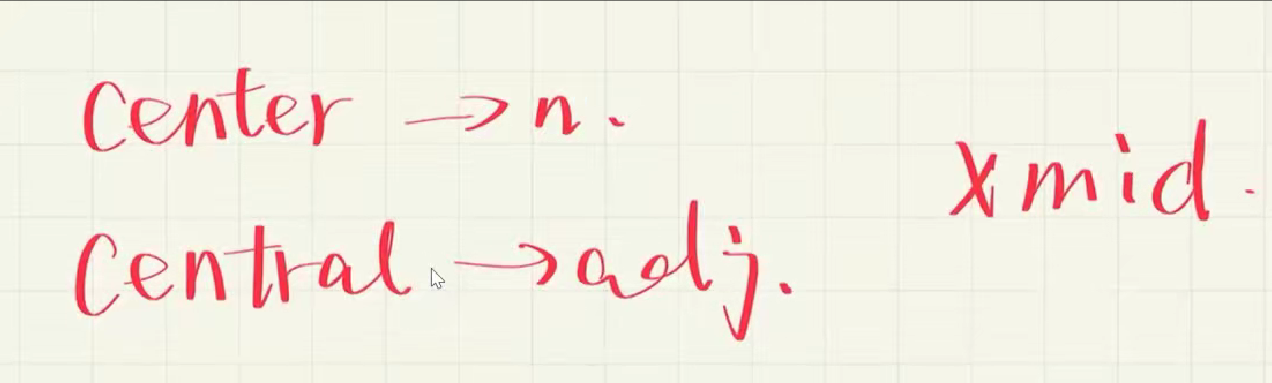 Center → n.
Central → adj.
x mid.